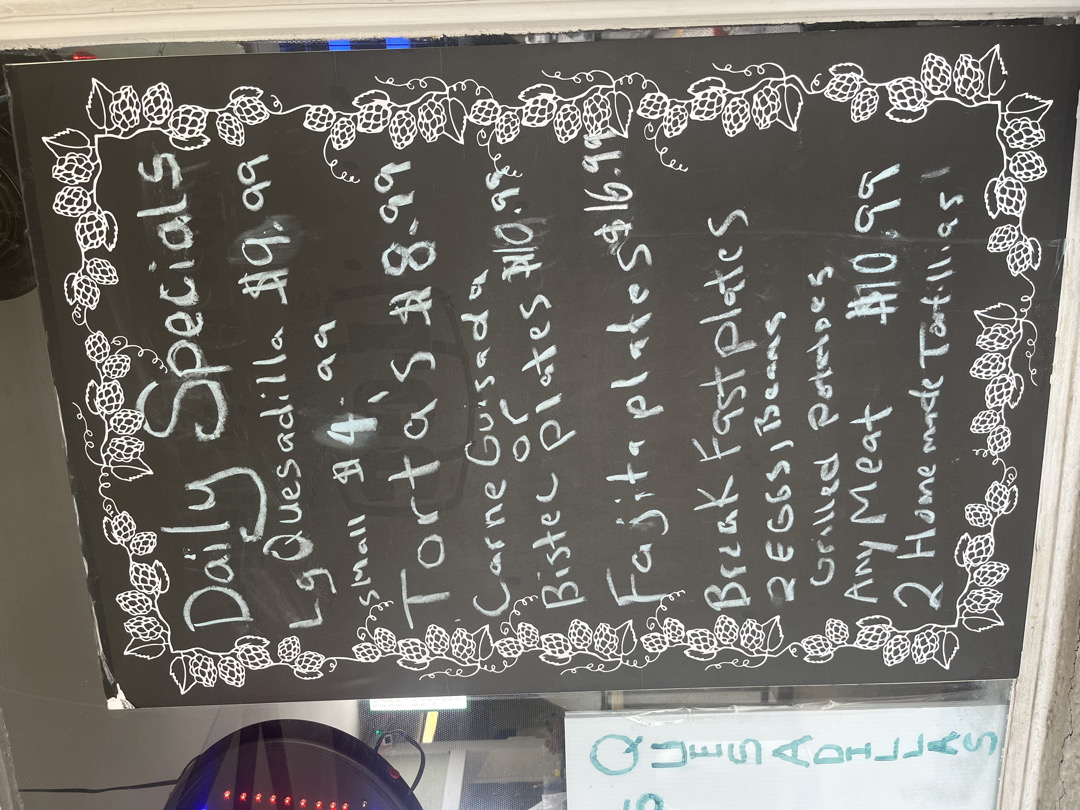 Daily Specials
Lg Quesadilla $9.99
small $4.99
Tortas $8.99
Carne Guisada
or
Bistec Plates $10.99
Fajita plates $16.99
Break Fast Plates
2 EGGS, Beans
Grilled Potatoes
Any Meat $10.99
2 Homemade Tortillas
QUESADILLAS